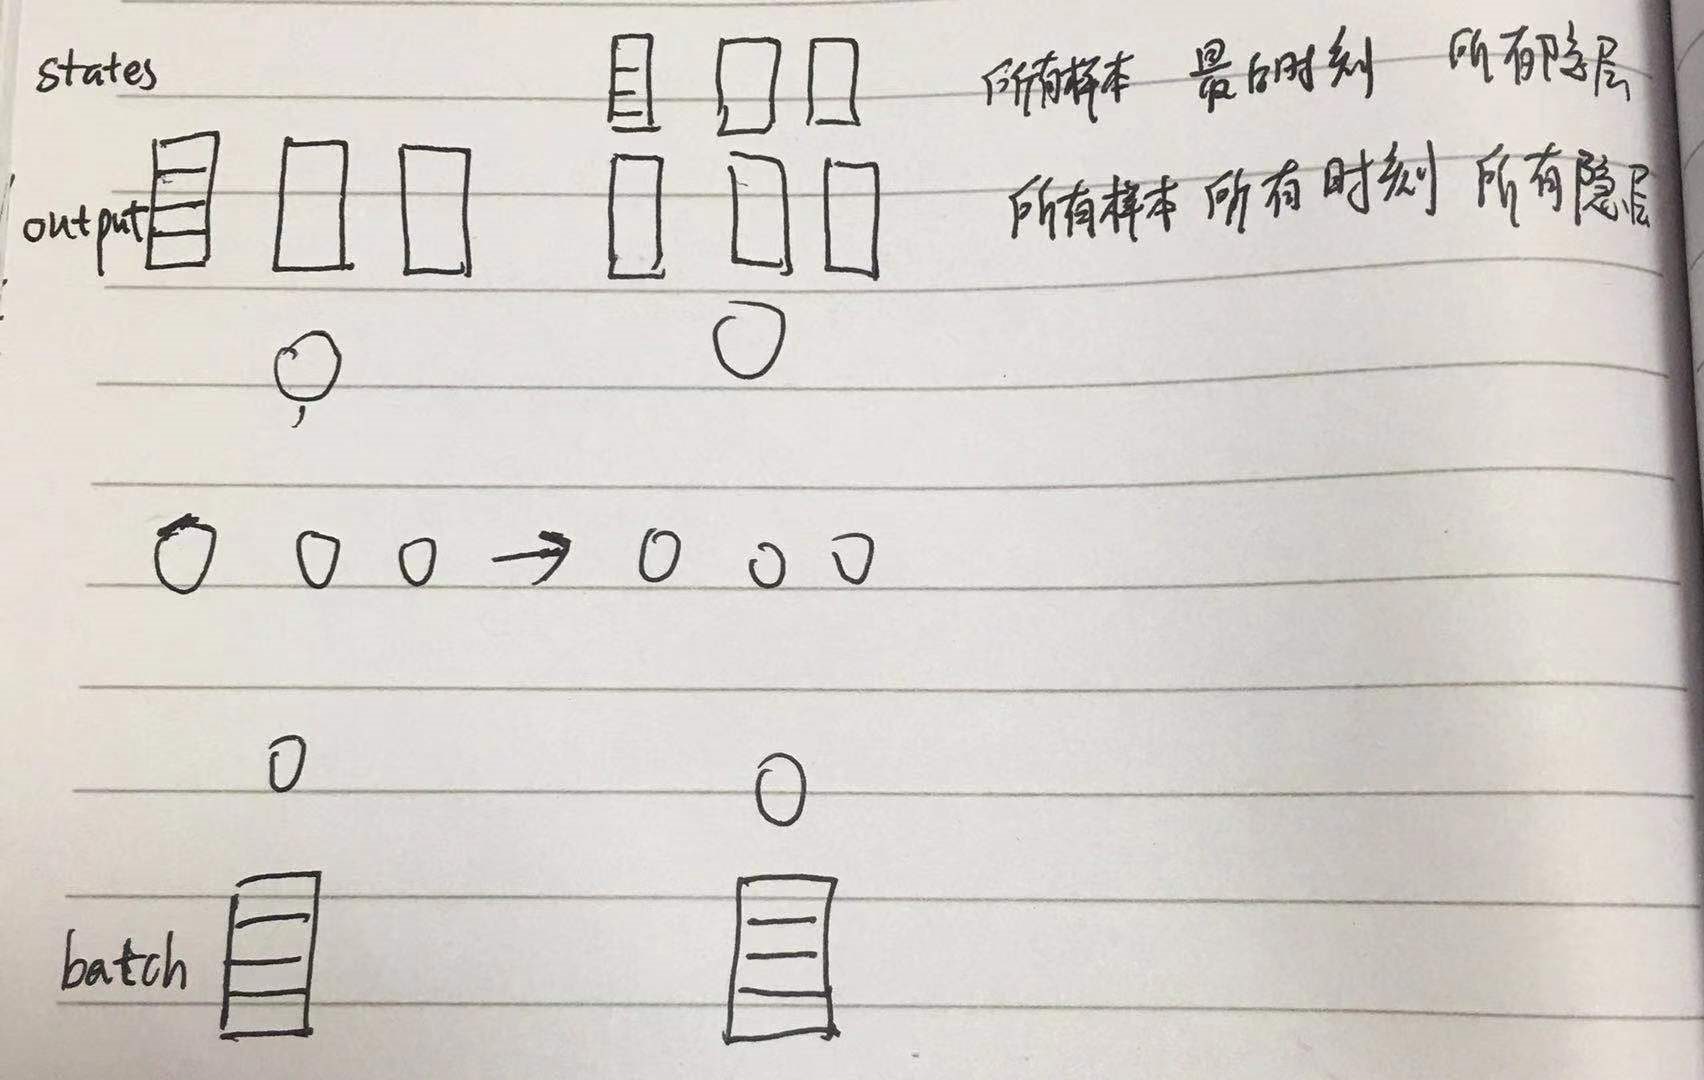 states 所有样本 最后时刻 所有隐层
output 所有样本 所有时刻 所有隐层
batch